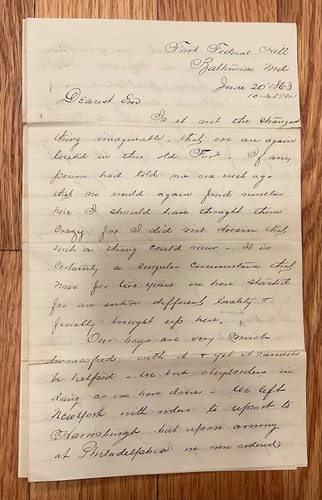 Fort Federal Hill
Baltimore, Md
June 20" 1863
10 P.M
Dearest Em
Is it not the strangest
thing imaginable, that we are again
located in this old Fort. If any
person had told me one week ago
that we would again find ourselves
here, I should have thought them
crazy for I did not dream that
such a thing could occur. It is
certainly a singular circumstance that
now for two years we have started
for an entire different locality &
finally brought up here.
Our boys are very much
dissatisfied with it & yet it cannot
be helped - we but obeyed orders in
doing as we have done - We left
New York with orders to report to
Harrisburgh but upon arriving
at Philadelphia we were ordered